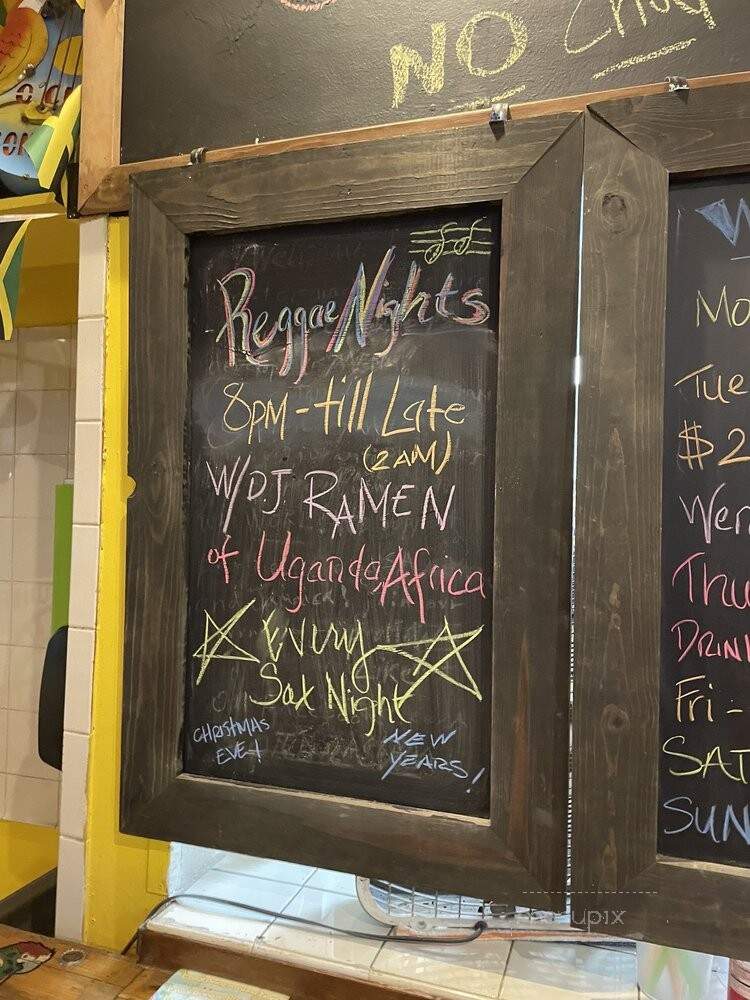 NO
Reggae Nights
8pm - till Late
(2AM)
W/DJ RAMEN
of Uganda, Africa
Every
Sat Night
CHRISTMAS
EVE +
NEW
YEARS!
Mo
Tue
$2
Wen
Thu
DRIN
Fri -
SAT
SUN